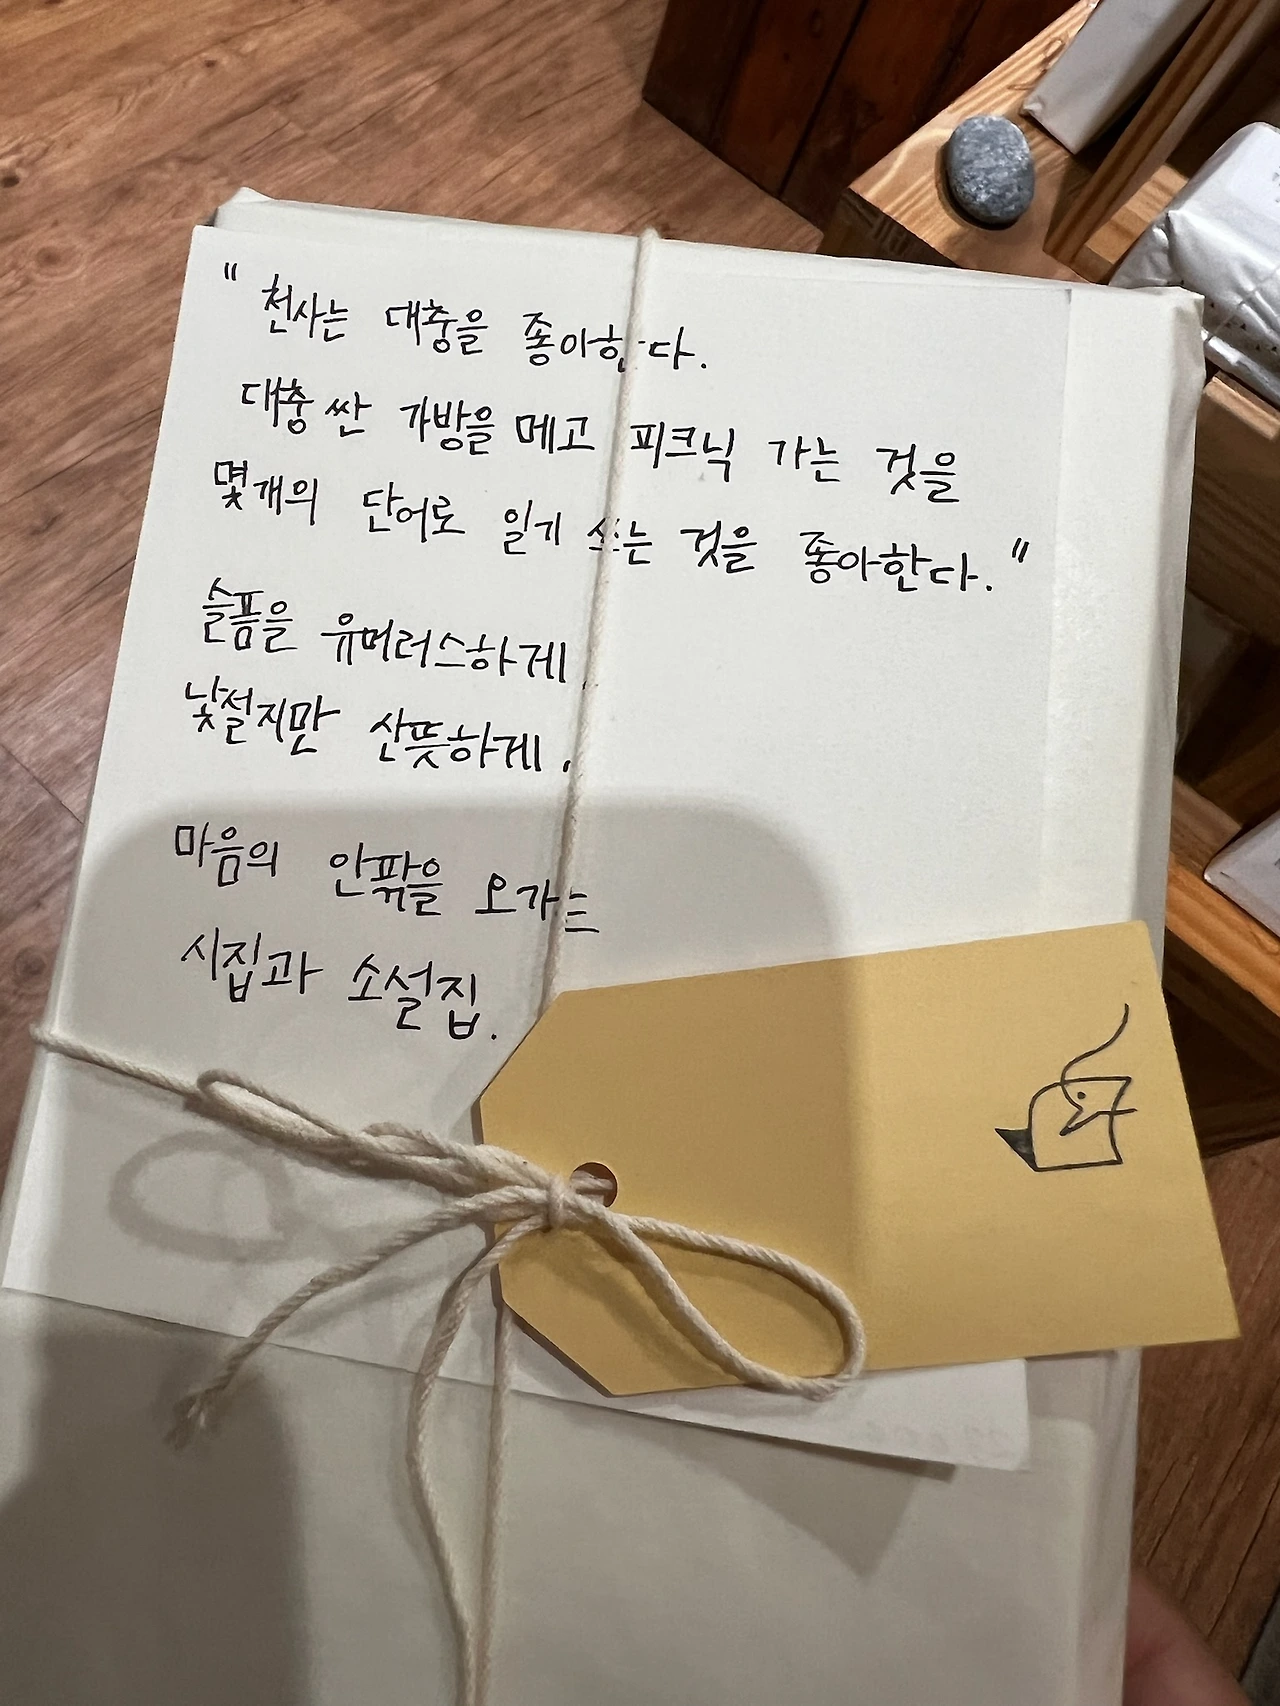 " 천사는 대충을 좋아한다.
대충 싼 가방을 메고 피크닉 가는 것을
몇개의 단어로 일기 쓰는 것을 좋아한다. "
슬픔을 유머러스하게,
낯설지만 산뜻하게,
마음의 안팎을 오가는
시집과 소설집.